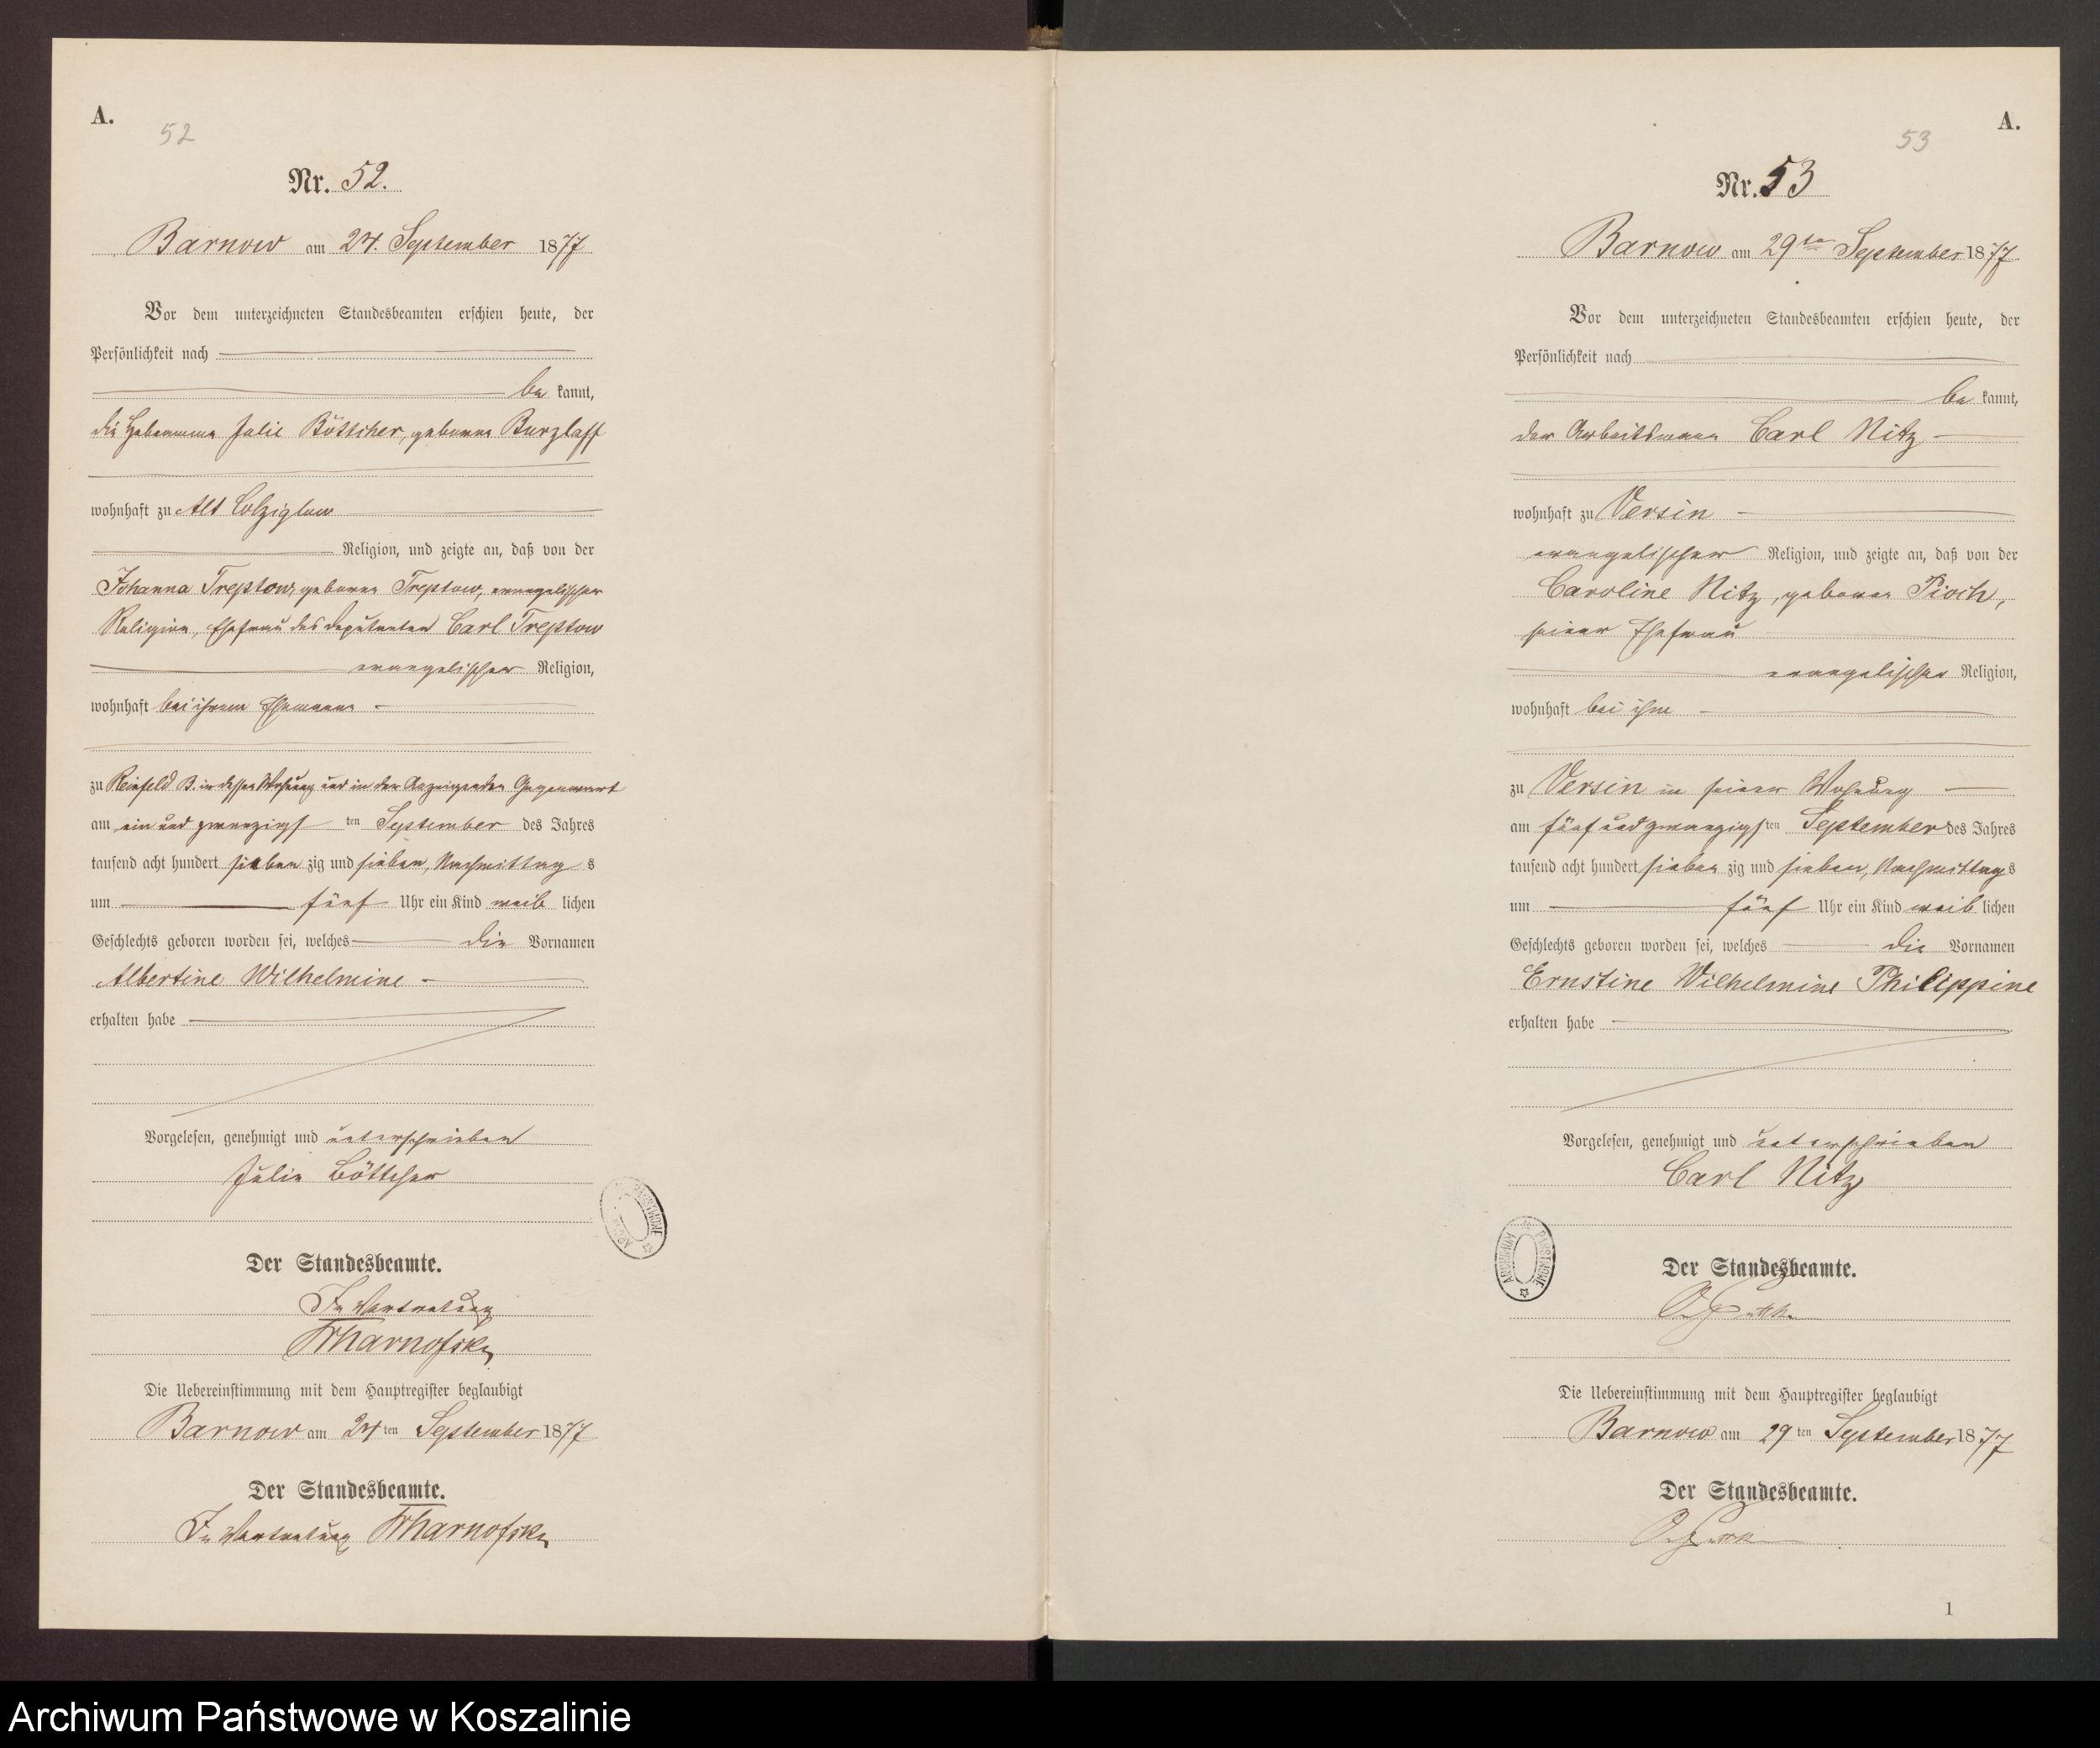 A.
52
Nr. 52.
Barnow am 24. September 1877
Vor dem unterzeichneten Standesbeamten erschien heute, der
Persönlichkeit nach
be kannt,
die Hebeamme Julie Böttcher, geborene Burzlaff
wohnhaft zu Alt Colziglow
Religion, und zeigte an, daß von der
Johanna Treptow, geborene Treptow, evangelischer
Religion, Ehefrau des Deputanten Carl Treptow
evangelischer Religion,
wohnhaft bei ihrem Ehemann
zu Reinfeld B. in dessen Wohnung und in der Anzeigenden Gegenwart
am ein und zwanzigs ten September des Jahres
tausend acht hundert sieben zig und sieben, Nachmittag s
um fünf Uhr ein Kind weib lichen
Geschlechts geboren worden sei, welches die Vornamen
Albertine Wilhelmine
erhalten habe
Vorgelesen, genehmigt und unterschrieben
Julie Böttcher
Der Standesbeamte.
In Vertretung
Die Uebereinstimmung mit dem Hauptregister beglaubigt
Barnow am 24 ten September 1877
Der Standesbeamte.
In Vertretung
A.
53
Nr. 53
Barnow am 29ten September 1877
Vor dem unterzeichneten Standesbeamten erschien heute, der
Persönlichkeit nach
be kannt,
der Arbeitsmann Carl Nitz
wohnhaft zu Versin
evangelischer Religion, und zeigte an, daß von der
Caroline Nitz, geborene Pioch,
seiner Ehefrau
evangelischer Religion,
wohnhaft bei ihm
zu Versin in seiner Wohnung
am fünf und zwanzigs ten September des Jahres
tausend acht hundert sieben zig und sieben, Nachmittag s
um fünf Uhr ein Kind weib lichen
Geschlechts geboren worden sei, welches die Vornamen
Ernstine Wilhelmine Philippine
erhalten habe
Vorgelesen, genehmigt und unterschrieben
Carl Nitz
Der Standesbeamte.
Die Uebereinstimmung mit dem Hauptregister beglaubigt
Barnow am 29 ten September 1877
Der Standesbeamte.
1
Archiwum Państwowe w Koszalinie